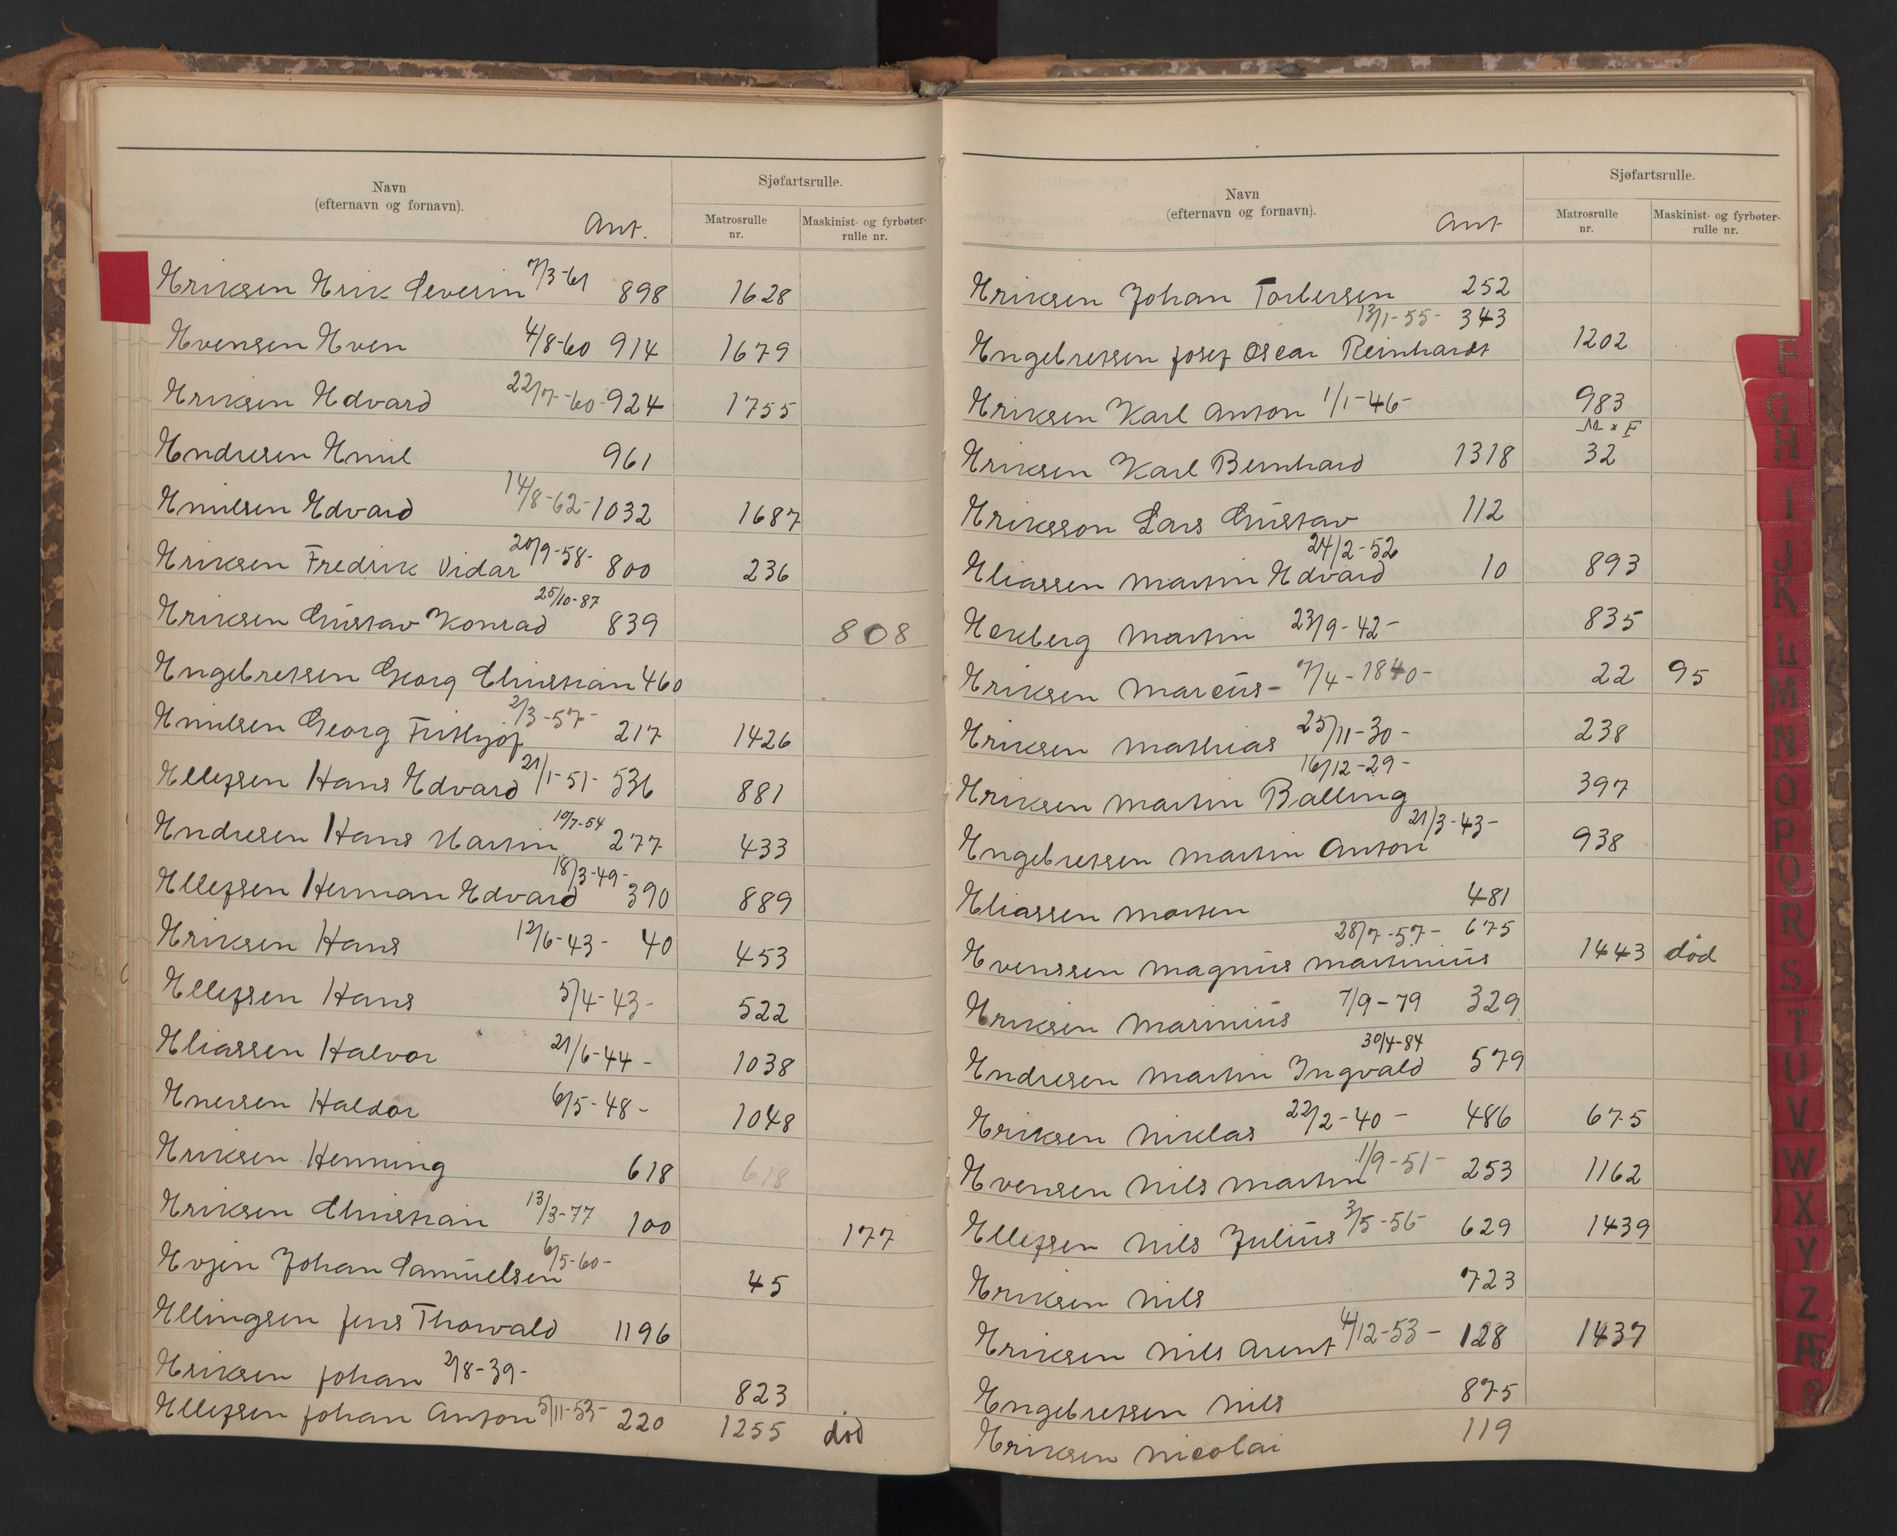 Navn
(efternavn og fornavn).
Ant.
Sjøfartsrulle.
Matrosrulle
nr.
Maskinist- og fyrbøter-
rulle nr.
Eriksen Erik Severin 7/3-61 898 1628
Evensen Even 4/8-60 914 1679
Eriksen Edvard 22/7-60- 924 1755
Endresen Emil 961
Emilsen Edvard 14/8-62- 1032 1687
Eriksen Fredrik Vidar 20/9-58- 800 236
Eriksen Gustav Konrad 25/10-87 839 808
Engebretsen Georg Christian 460
Emilsen Georg Frithjof 2/3-57- 217 1426
Ellefsen Hans Edvard 21/1-51- 536 881
Endresen Hans Martin 10/7-54 277 433
Ellefsen Herman Edvard 18/3-49- 390 889
Eriksen Hans 12/6-43- 40 453
Ellefsen Hans 5/4-43- 522
Eliassen Halvor 21/6-44- 1038
Enersen Haldor 6/5-48- 1048
Eriksen Henning 618 618
Eriksen Christian 13/3-77 100 177
Evjen Johan Samuelsen 6/5-60- 45
Ellingsen Jens Thorvald 1196
Eriksen Johan 2/8-39- 823
Ellefsen Johan Anton 5/11-53- 220 1255 død
Navn
(efternavn og fornavn).
Ant
Sjøfartsrulle.
Matrosrulle
nr.
Maskinist- og fyrbøter-
rulle nr.
Eriksen Johan Torbersen 252
Engebretsen Josef Oscar Reinhardt 13/1-55- 343 1202
Eriksen Karl Anton 1/1-46- 983
M x F
Eriksen Karl Bernhard 1318 32
Eriksson Lars Gustav 112
Eliassen Martin Edvard 24/2-52 10 893
Ekberg Martin 23/9-42- 835
Eriksen Marcus- 7/4-1840- 22 95
Eriksen Mathias 25/11-30- 238
Eriksen Martin Balling 16/12-29- 397
Engebretsen Martin Anton 21/3-43- 938
Eliassen Morten 481
Evenssen Magnus Martinius 28/7-57- 675 1443 død
Eriksen Marinius 7/9-79 329
Endresen Martin Ingvald 30/4-84 579
Eriksen Niklas 22/2-40- 486 675
Evensen Nils Martin 1/9-51- 253 1162
Ellefsen Nils Julius 3/5-56- 629 1439
Eriksen Nils 723
Eriksen Nils Arent 4/12-53- 128 1437
Engebretsen Nils 875
Eriksen Nicolai 119
F
G
H
I
J
K
L
M
N
O
P
Q
R
S
T
U
V
W
X
Y
Z
Æ
Ø